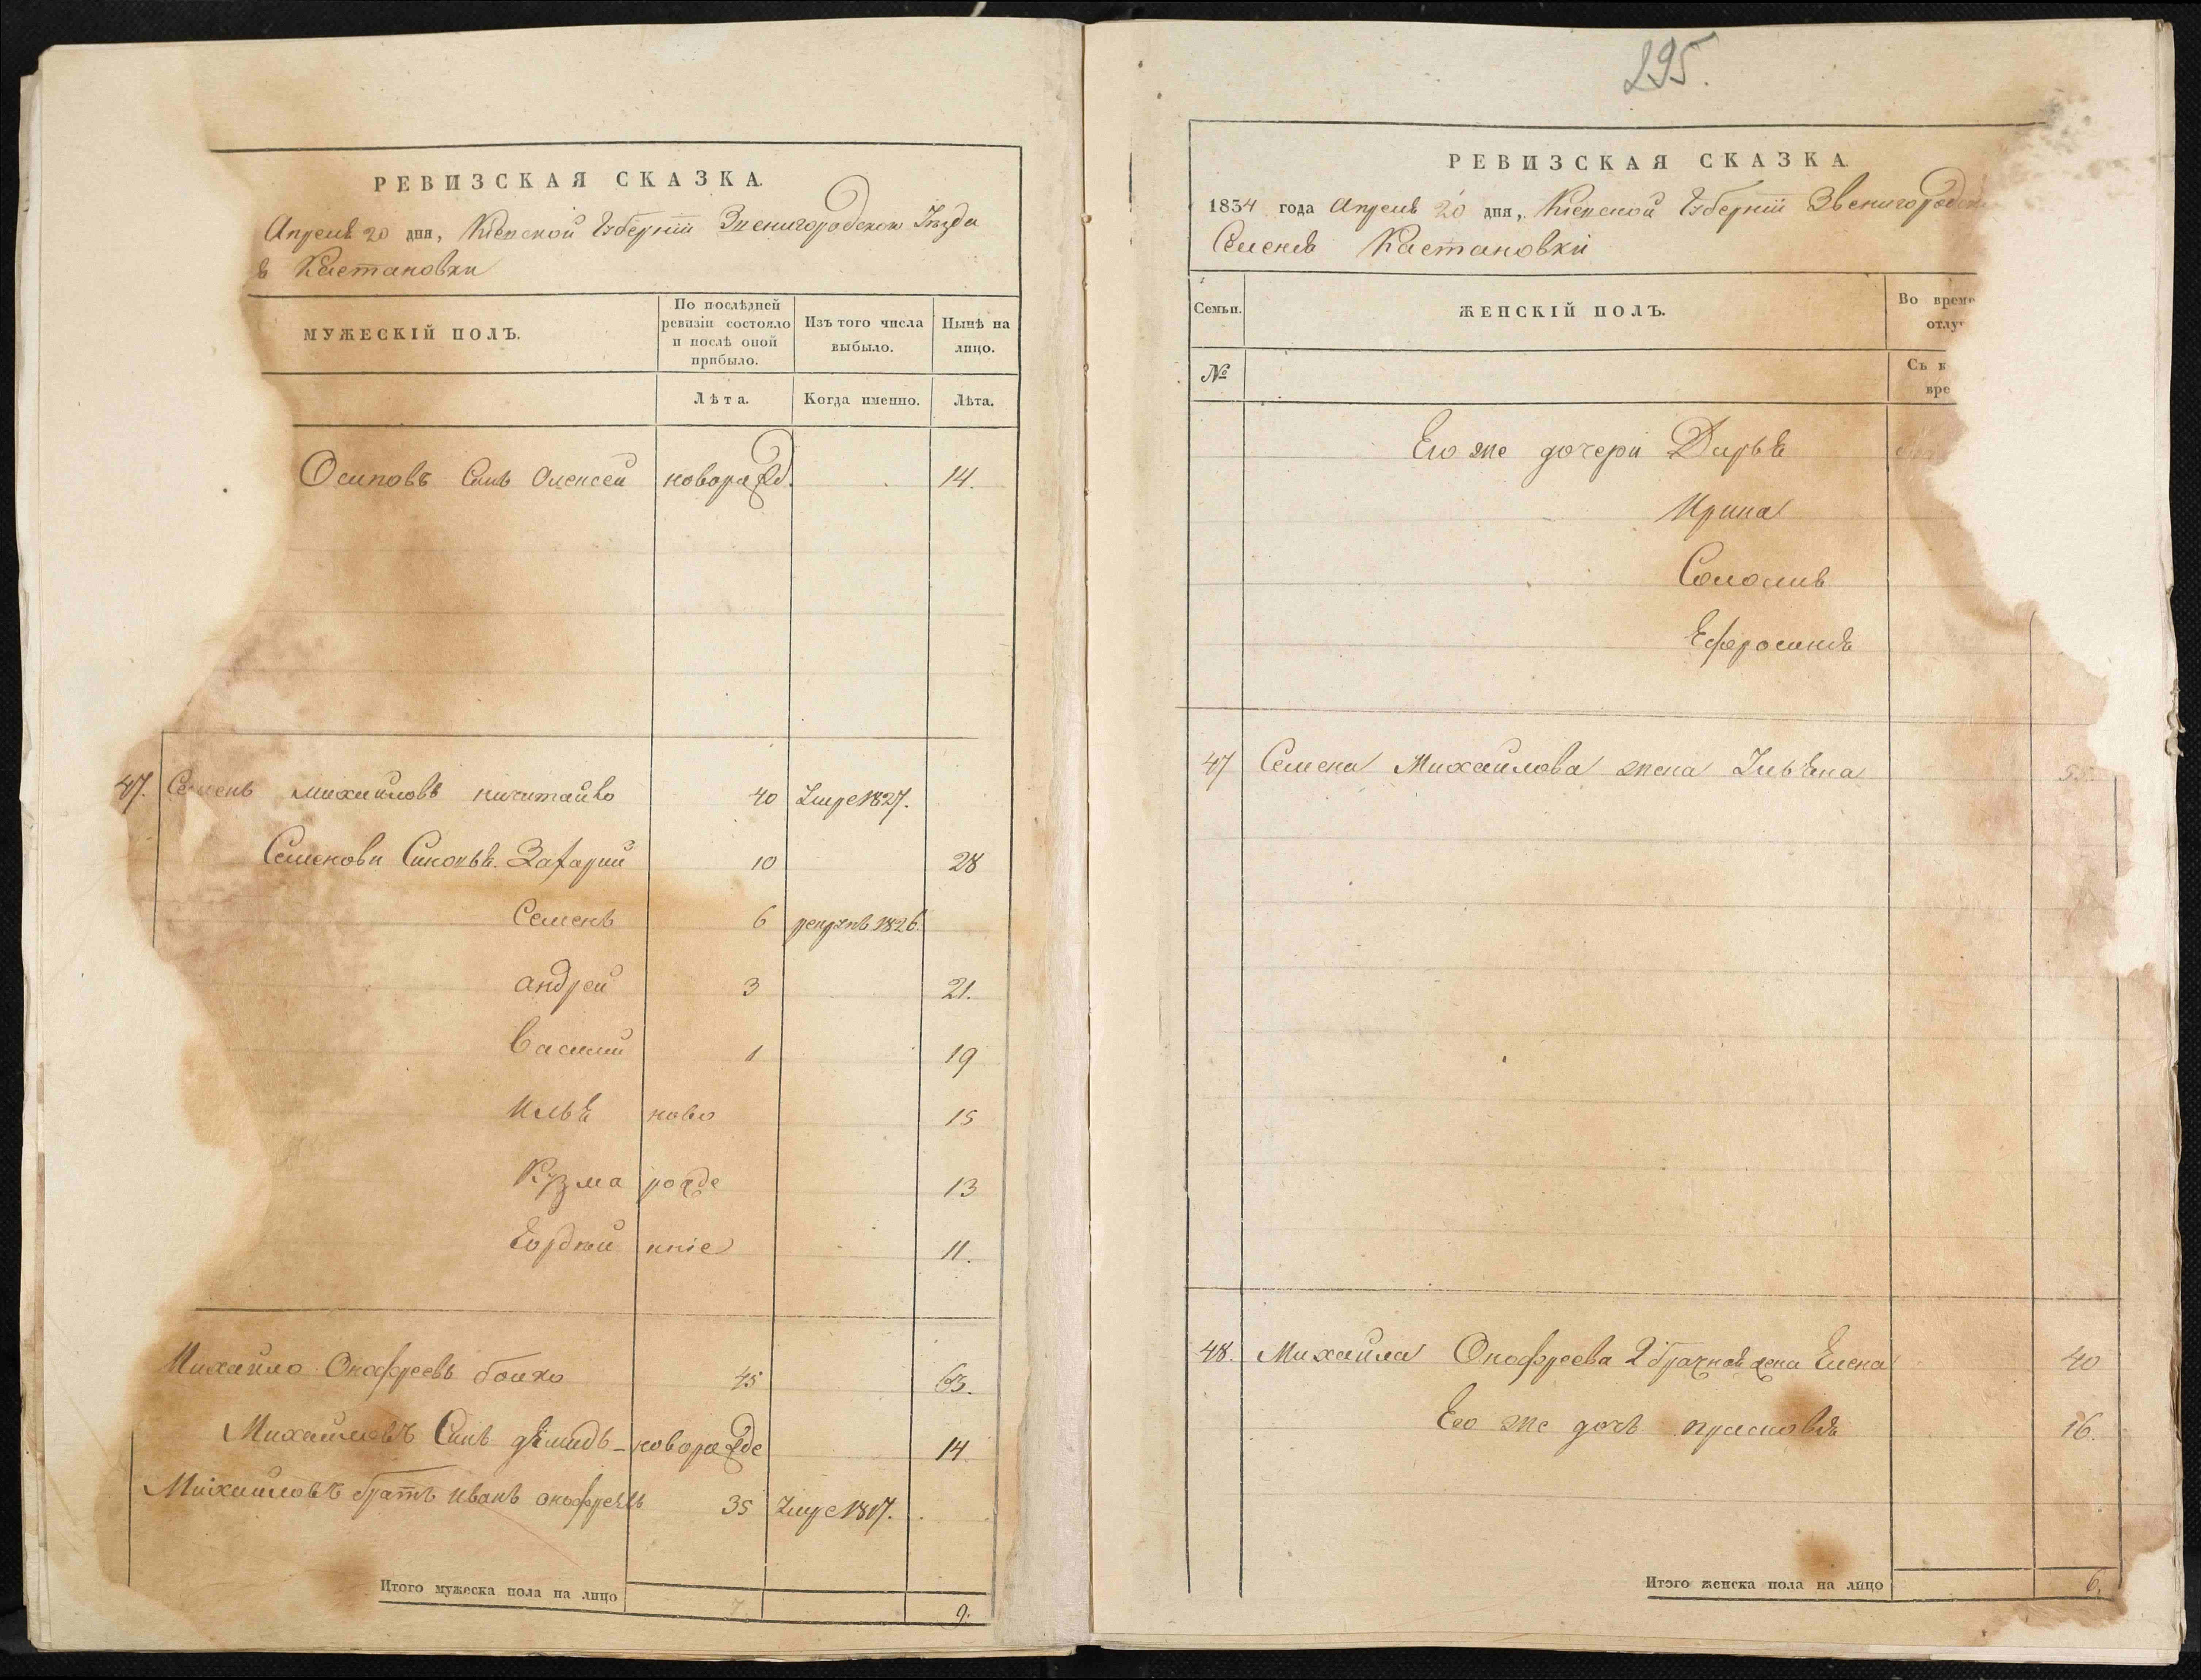 РЕВИЗСКАЯ СКАЗКА.
Апреля 20 дня, Кіевской Губерніи Звенигородскои Уезда
Кастановки
МУЖЕСКІЙ ПОЛЪ.
По послѣдней ревизіи состояло и послѣ оной прибыло.
Изъ того числа выбыло.
Нынѣ на лицо.
Лѣта.
Когда именно.
Лѣта.
Осиповъ Синъ Олексей новорожд. 14.
47. Семенъ михайловъ 40 Умре 1827.
Семенови Синовья Захарий 10 28
Семенъ 6 рекрутъ 1826.
андрей 3 21.
Василий 1 19
Илья ново 15
Кузма рожде 13
нніе 11.
Михайло Онофреевъ бойко 45 63.
Михайловъ Синъ демидъ - новорожде 14
Михайловъ братъ иванъ онофреевъ 35 Умре 1817.
Итого мужеска пола на лицо 7 9.
295.
РЕВИЗСКАЯ СКАЗКА.
1834 года Апреля 20 дня, Кіевской Губерніи Звенигородск
Селенія Кастановки
Семьи.
ЖЕНСКІЙ ПОЛЪ.
Во време
отлу
№
Съ к
вре
Его же дочери Дарья
Ирина
Соломия
Ефросиния
47 Семена Михайлова жена Ульяна 55.
48. Михайла Онофреева 2 брачная жена Елена 40
Его же дочь прасковия 16.
Итого женска пола на лицо 6.